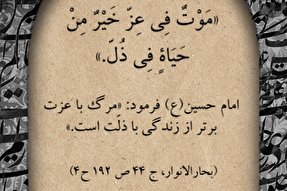 «مَوْتٌ فِی عِزّ خَیْرٌ مِنْ
حَیاهٍ فِی ذُلّ.»
امام حسین(ع) فرمود: «مرگ با عزت
برتر از زندگی با ذلّت است.»
(بحارالانوار، ج ۴۴ ص ۱۹۲ ح۴)